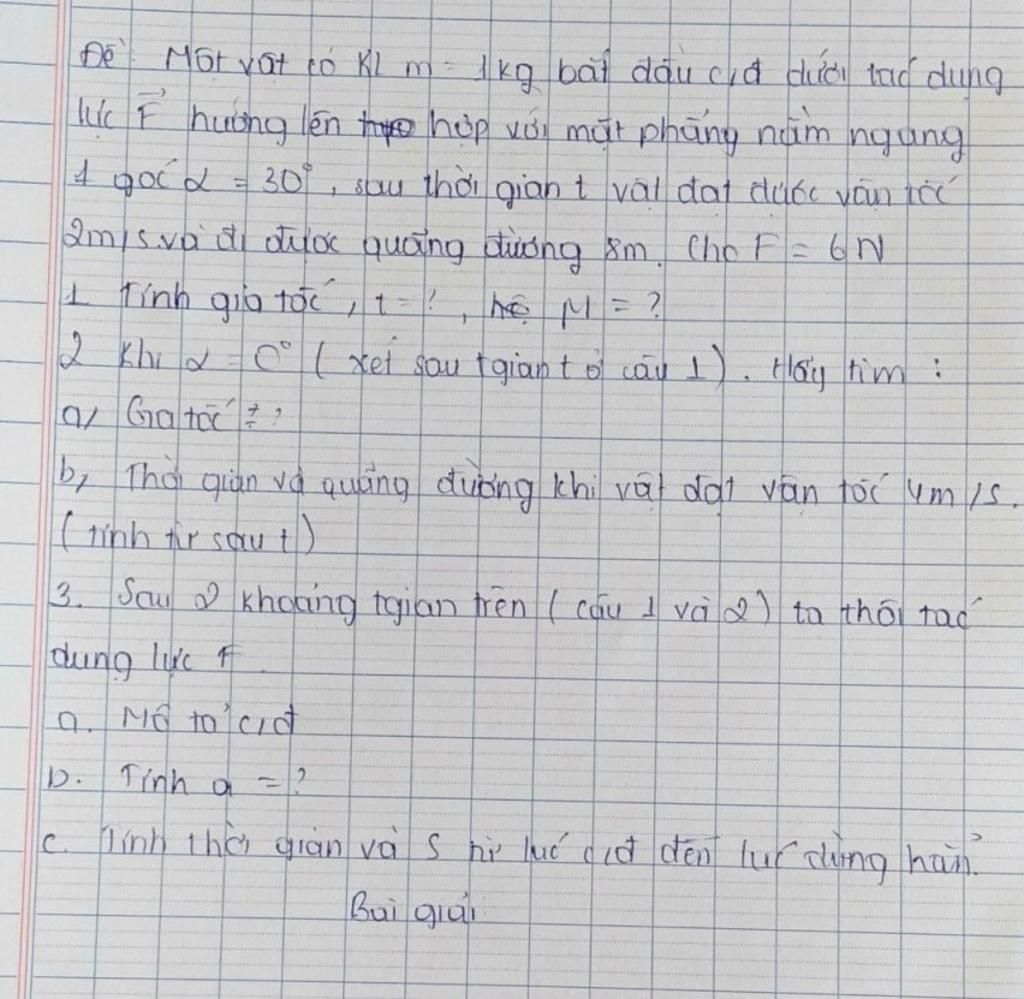 Đề: Một vật có KL m = 1kg bắt đầu c/đ dưới tác dụng
lực F hướng lên hợp với mặt phẳng nằm ngang
1 góc α = 30°, sau thời gian t vật đạt được vận tốc
2m/s và đi được quãng đường 8m. Cho F = 6N
1 Tính gia tốc, t = ?, hệ μ = ?
2 Khi α = 0° (xét sau tgian t ở câu 1). Hãy tìm :
a, Gia tốc = ?
b, Thời gian và quãng đường khi vật đạt vận tốc 4m/s.
(tính từ sau t)
3. Sau 2 khoảng tgian trên (câu 1 và 2) ta thôi tác
dụng lực F
a. Mô tả c/đ
b. Tính a = ?
c. Tính thời gian và S từ lúc c/đ đến lúc dừng hẳn.
Bài giải